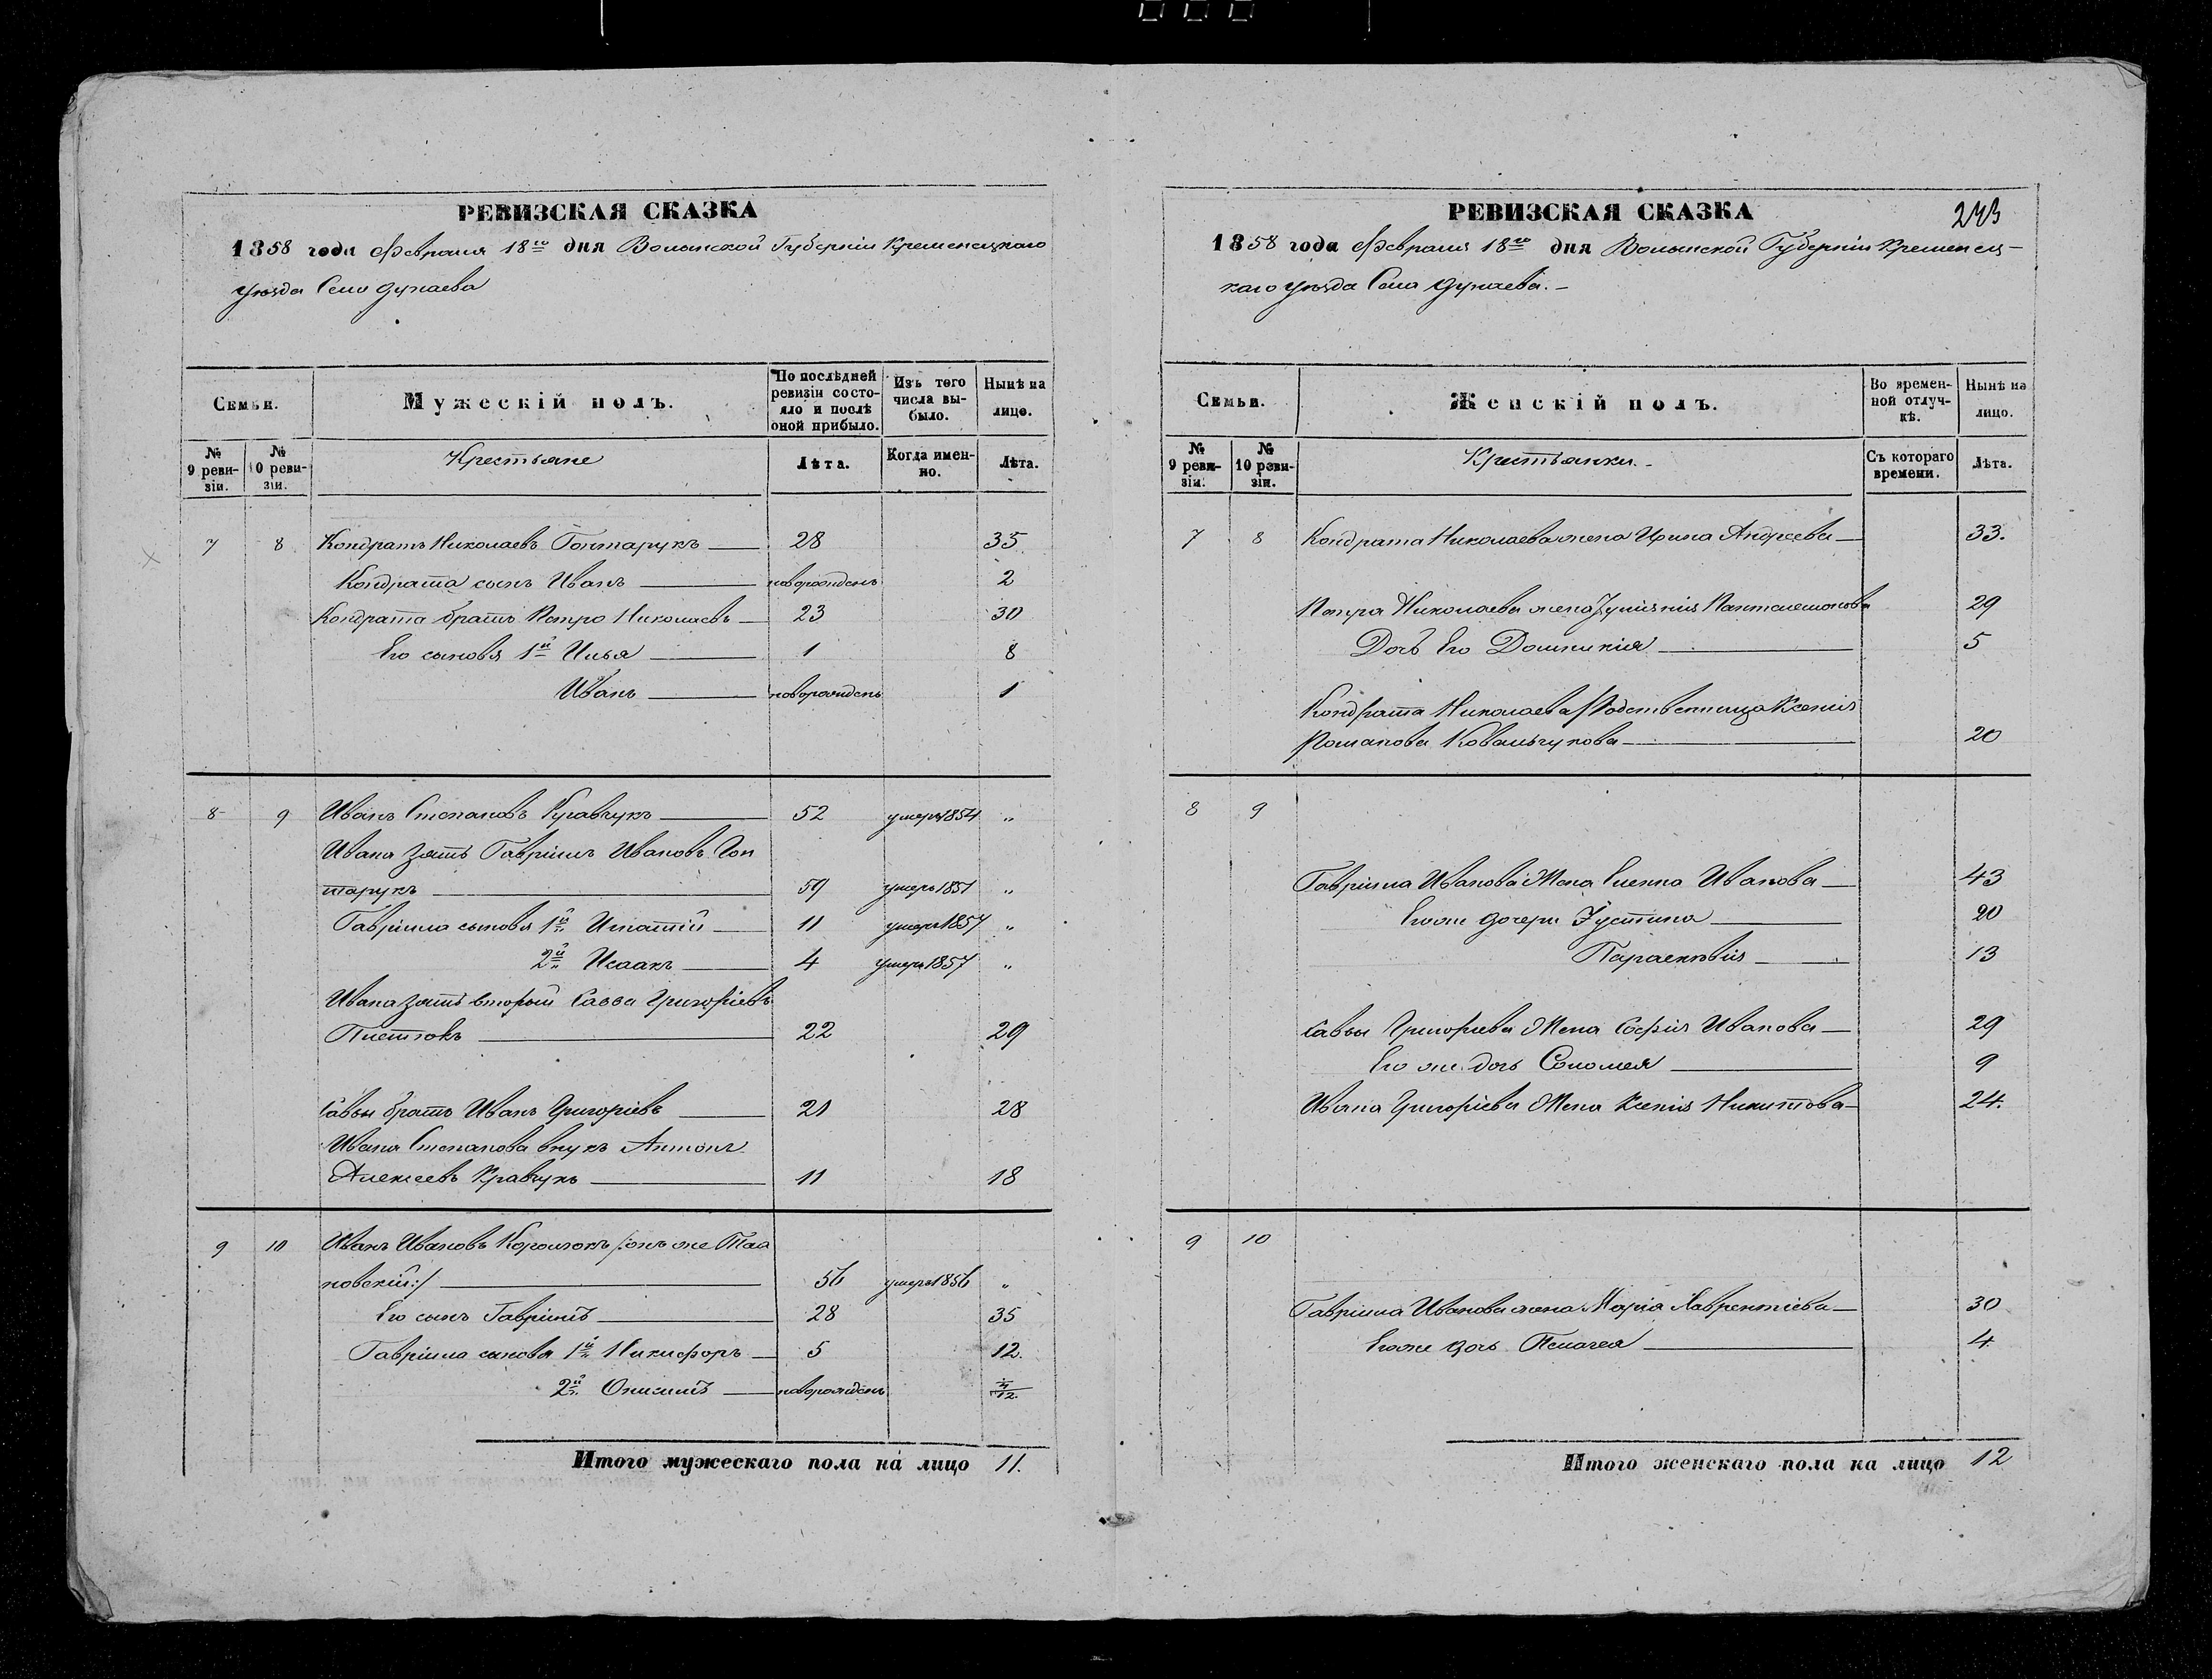 РЕВИЗСКАЯ СКАЗКА
1858 года Февраля 18го дня Волынской Губерніи Кременецкаго
уѣзда Села Дунаева
Семьи.
Мужескій полъ.
По послѣдней ревизіи состояло и послѣ оной прибыло.
Изъ того числа выбыло.
Ныне на лицо.
№ 9 ревизіи.
№ 10 ревизіи.
Крестьяне
Лѣта.
Когда именно.
Лѣта.
7 8 Кондратъ Николаевъ Гонтарукъ 28 35
Кондрата сынъ Иванъ новорожденъ 2
Кондрата братъ Петро Николаевъ 23 30
Его сыновья 1й Илья 1 8
Иванъ новорожденъ 1
8 9 Иванъ Степановъ 52 умеръ 1854 "
Ивана зять Гавріилъ Ивановъ Гон
тарукъ 59 умеръ 1851 "
Гавріила сыновья 1й Игнатій 11 умеръ 1857 "
2й Исаакъ 4 умеръ 1857 "
Ивана зять вторый Савва Григоріевъ
22 29
Саввы братъ Иванъ Григоріевъ 21 28
Ивана Степанова внукъ Антонъ
Алексеевъ Кравчукъ 11 18
9 10 Иванъ Ивановъ /:онъ же
новскій:/ 56 умеръ 1856 "
Его сынъ Гавріилъ 28 35
Гавріила сыновья 1й Никифоръ 5 12.
2й Онисимъ новорожденъ
Итого мужескаго пола на лицо 11.
РЕВИЗСКАЯ СКАЗКА 243
1858 года Февраля 18го дня Волынской Губерніи Кременец-
каго уѣзда Села Дунаева.-
Семьи.
Женскій полъ.
Во временной отлучкѣ.
Нынѣ на лицо.
№ 9 ревизіи.
№ 10 ревизіи.
Крестьянки.-
Съ котораго времени.
Лѣта.
7 8 Кондрата Николаева жена Ирина Андреева 33.
Петра Николаева жена Пантелемонова 29
Дочь Его Домникія 5
Кондрата Николаева Родственница Ксенія
Романова Ковальчукова 20
8 9
Гавріила Иванова Жена Елена Иванова 43
Егоже дочери Устина 20
Параскевія 13
Саввы Григорьева Жена Софія Иванова 29
Его же дочь Соломея 9
Ивана Григоріева Жена Ксенія Никитова 24.
9 10
Гавріила Иванова жена Марія Лаврентіева 30
Егоже дочь Пелагея 4
Итого женскаго пола на лицо 12